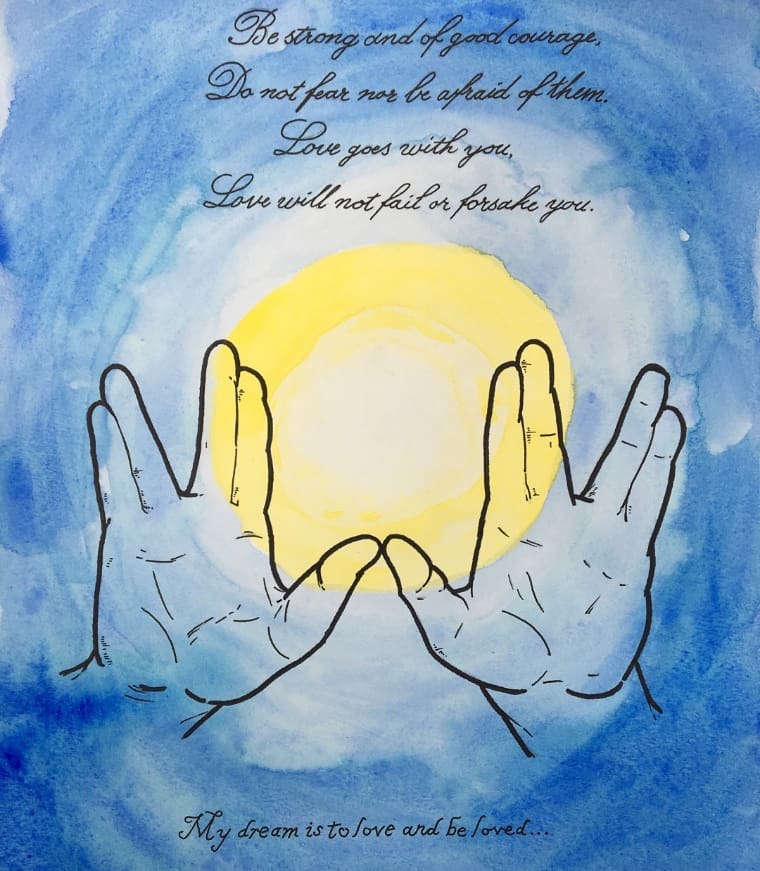 Be strong and of good courage,
Do not fear nor be afraid of them.
Love goes with you,
Love will not fail or forsake you.
My dream is to love and be loved...